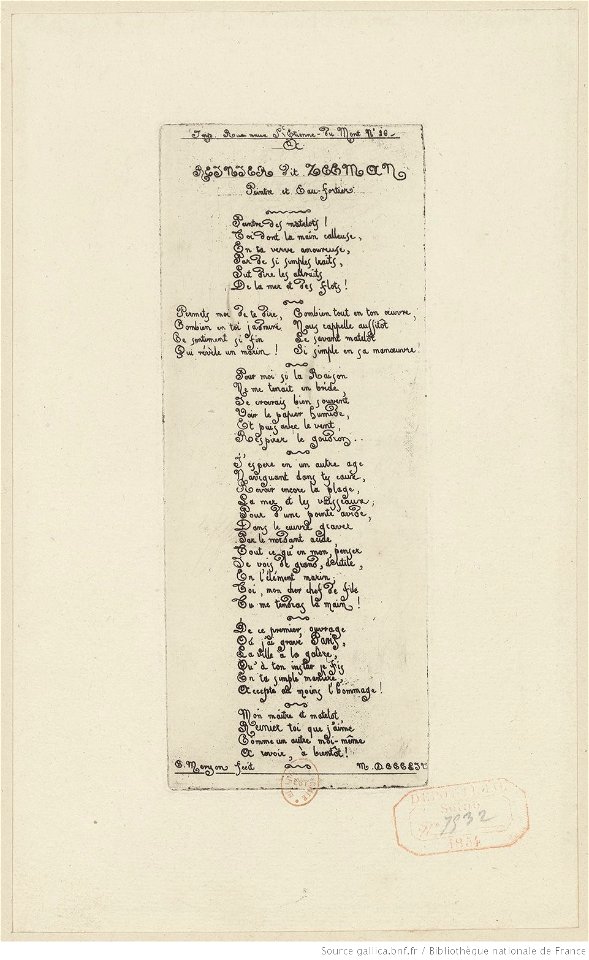 Imp. Rue neuve St Etienne-du Mont No 26
A
REINIER dit ZEEMAN
Peintre et Eau-fortier.
Peintre des matelots !
Toi dont la main calleuse,
En ta verve amoureuse,
Par de si simples traits,
Sut dire les attraits
De la mer et des flots !
Permets moi de te dire,
Combien en toi j'admire
Ce sentiment si fin
Qui révèle un marin !
Combien tout en ton œuvre,
Nous rappelle aussitot
Le savant matelot
Si simple en sa manœuvre
Pour moi si la Raison
Ne me tenait en bride,
Je croirais bien souvent
Voir le papier humide,
Et puis avec le vent,
Respirer le goudron..
J'espère en un autre age
Naviguant dans tes eaux,
Revoir encore la plage,
La mer et les vaisseaux;
Pour d'une pointe avide,
Dans le cuivre graver
Par le mordant acide
Tout ce qu'en mon penser
Je vois de grand, d'utile,
En l'élément marin;
Toi, mon cher chef de file
Tu me tendras la main !
De ce premier ouvrage
Où j'ai gravé Paris,
La ville à la galère,
Qu'à ton instar je fis
En ta simple manière,
Accepte au moins l'hommage !
Mon maître et matelot,
REINIER toi que j'aime
Comme un autre moi-même
A revoir, à bientot !
C. Meryon fecit
M. DCCCLIV
7932
1854
Source gallica.bnf.fr / Bibliothèque nationale de France